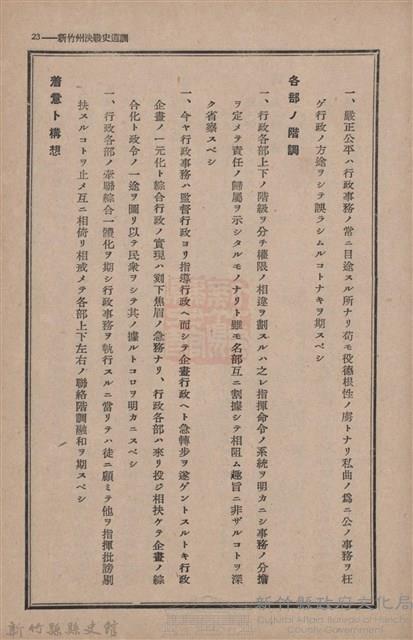 23——新竹州決戰史遺調
一、嚴正公平ハ行政事務ノ常ニ目途スル所ナリ苟モ役德根性ノ虜トナリ私曲ノ爲ニ公ノ事務ヲ枉
ゲ行政ノ方途ヲシテ誤ラシムルコトナキヲ期スベシ
各部ノ階調
一、行政各部上下ノ階級ヲ分チ權限ノ相違ヲ劃スルハ之レ指揮命令ノ系統ヲ明カニシ事務ノ分擔
ヲ定メテ責任ノ歸屬ヲ示シタルモノナリト雖モ名部互ニ割據シテ相阻ム趣旨ニ非ザルコトヲ深
ク省察スベシ
一、今ヤ行政事務ハ監督行政ヨリ指導行政ヘ而シテ企畫行政ヘト急轉步ヲ遂ゲントスルトキ行政
企畫ノ一元化ト綜合行政ノ實現ハ刻下焦眉ノ急務ナリ、行政各部ハ來リ投ジ相扶ケテ企畫ノ綜
合化ト政令ノ一途ヲ圖リ以テ民衆ヲシテ其ノ據ルトコロヲ明カニスベシ
一、行政各部ノ牽聯綜合一體化ヲ期シ行政事務ヲ執行スルニ當リテハ徒ニ顧ミテ他ヲ指揮批謗剔
抉スルコトヲ止メ互ニ相倚リ相戒メテ各部上下左右ノ聯絡階調融和ヲ期スベシ
着意ト構想
新竹縣縣史館
新竹縣政府文化局
Cultural Affairs Bureau of Hsinchu County Government